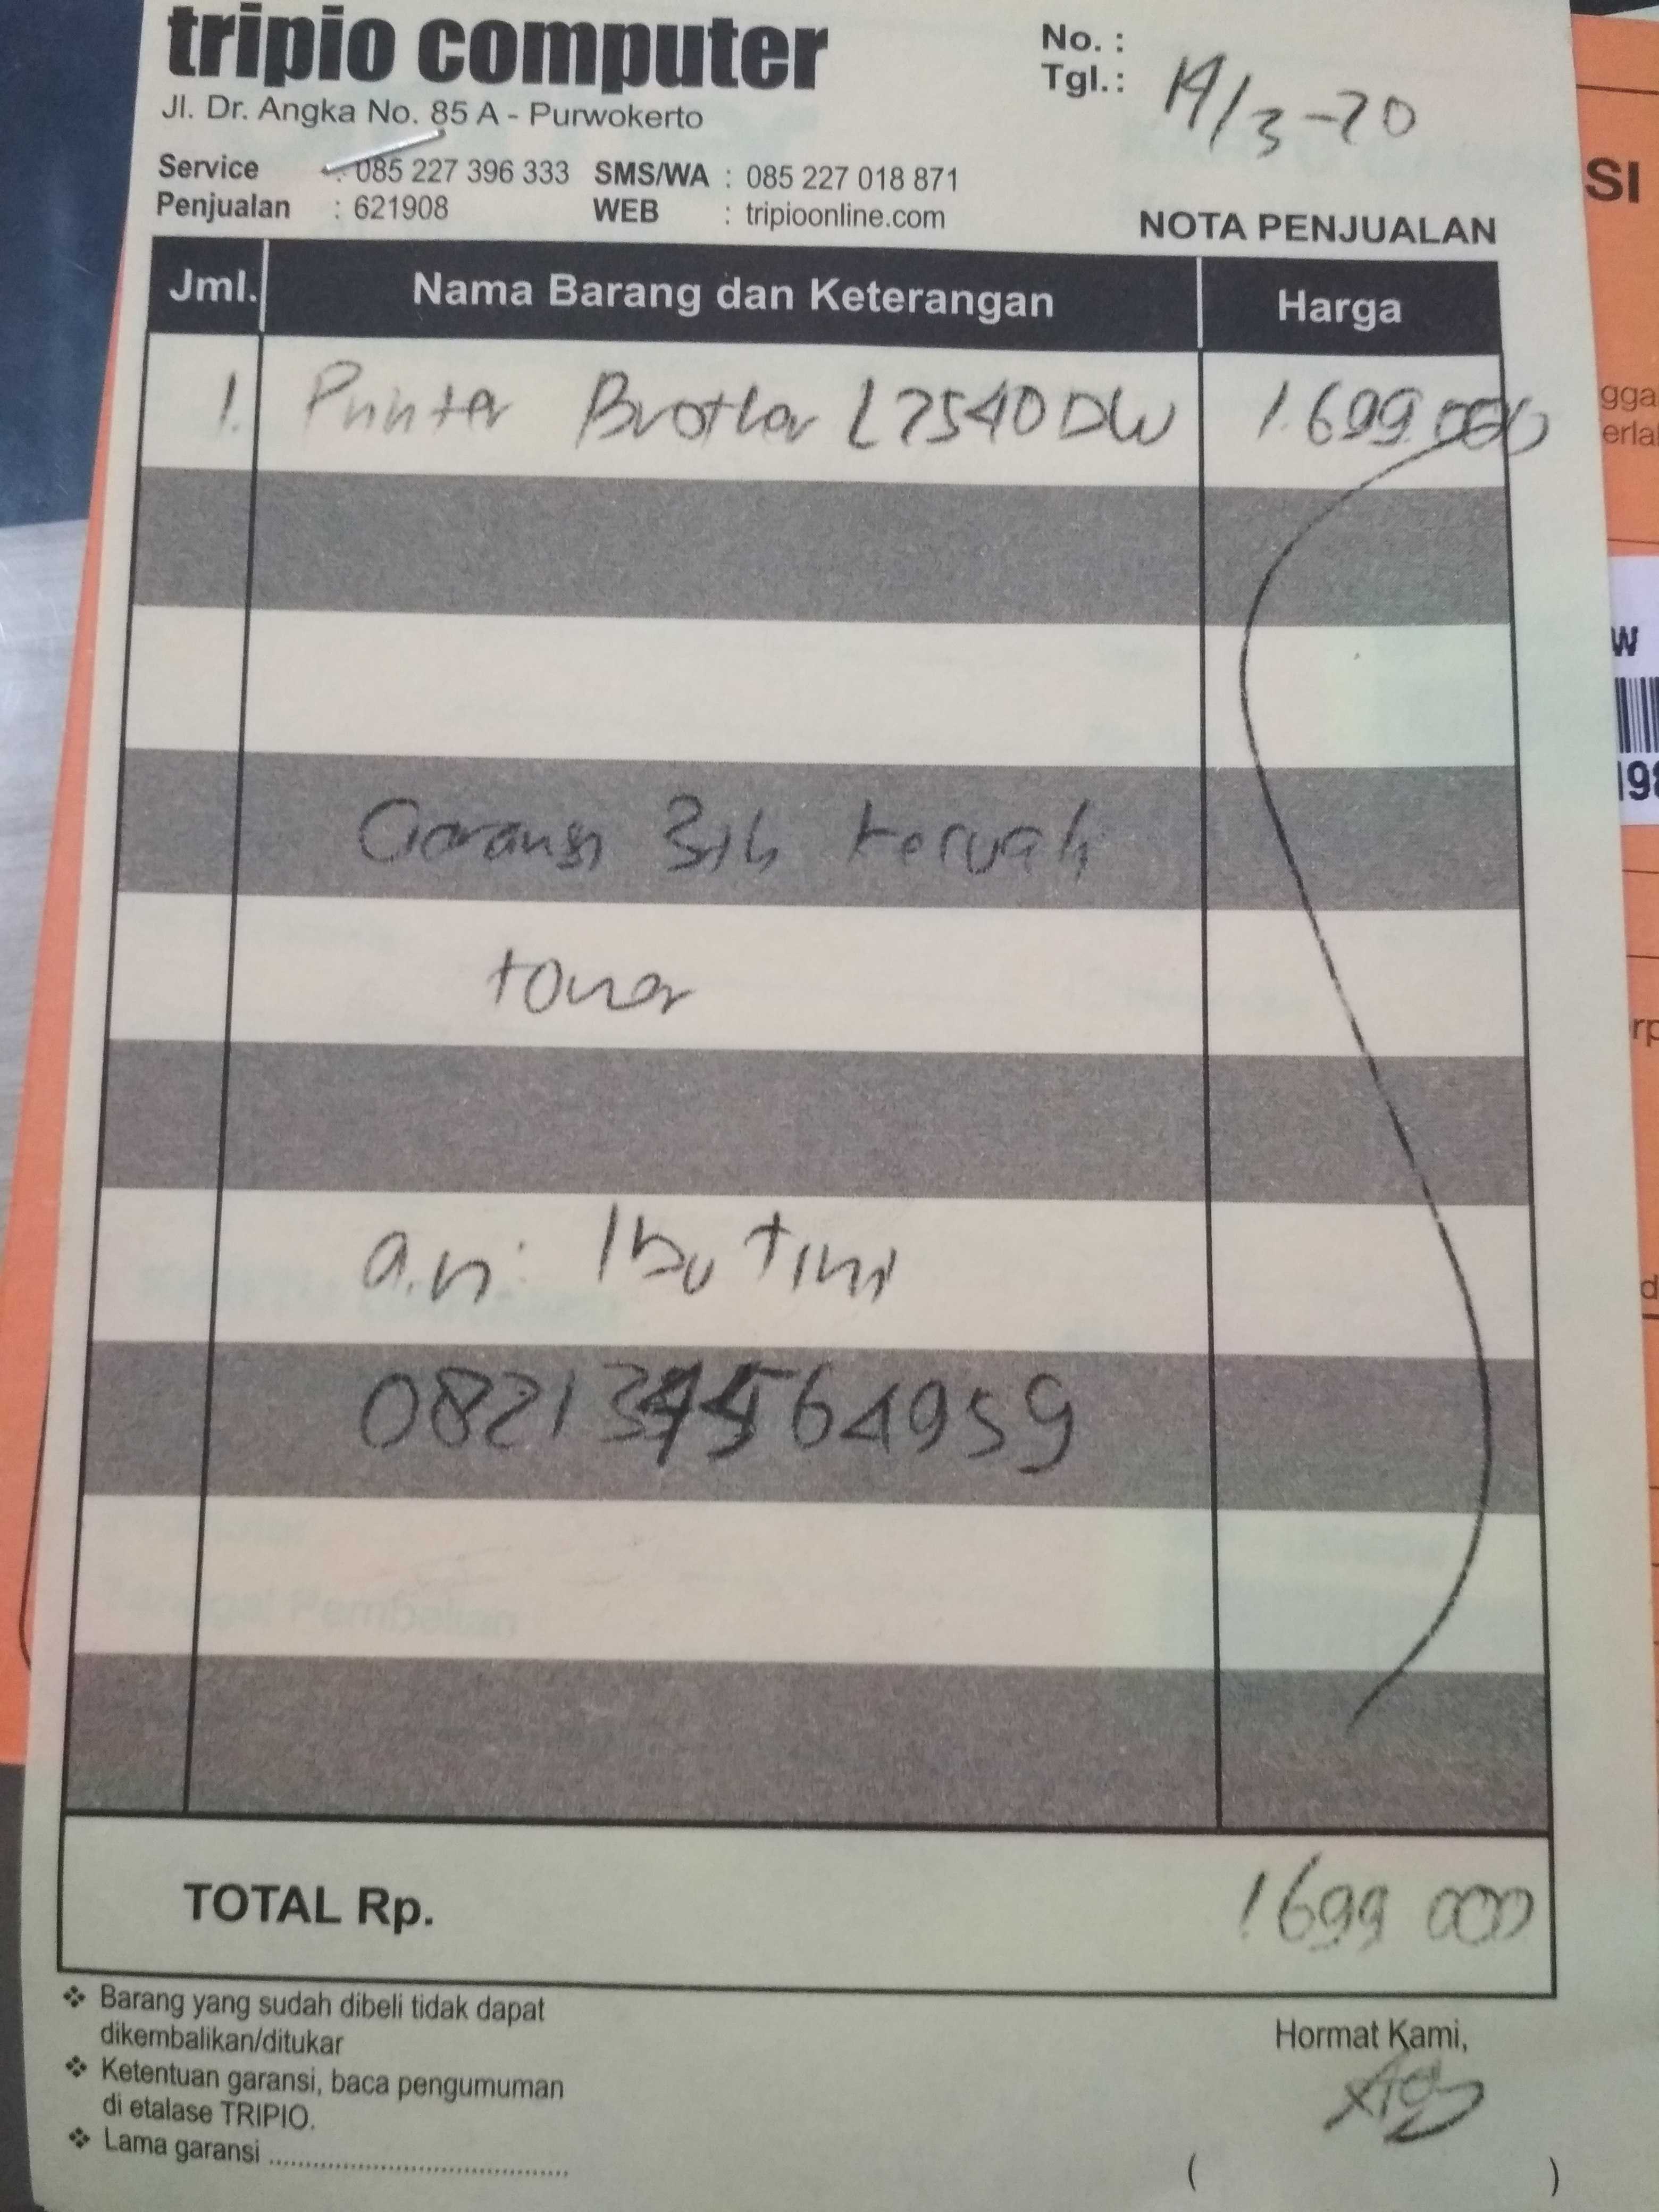 tripio computer
No. :
Tgl.: 19/3-20
Jl. Dr. Angka No. 85 A - Purwokerto
Service : 085 227 396 333 SMS/WA : 085 227 018 871
Penjualan : 621908 WEB : tripioonline.com
NOTA PENJUALAN
Jml. Nama Barang dan Keterangan Harga
1. Printer Brother L2540DW 1.699.000
Garansi 3th kecuali
toner
a.n: Ibu Tini
TOTAL Rp. 1699 000
Barang yang sudah dibeli tidak dapat
dikembalikan/ditukar
Ketentuan garansi, baca pengumuman
di etalase TRIPIO.
Lama garansi ........................................
Hormat Kami,
( )
SI
gga
erla
W
198
rp
d